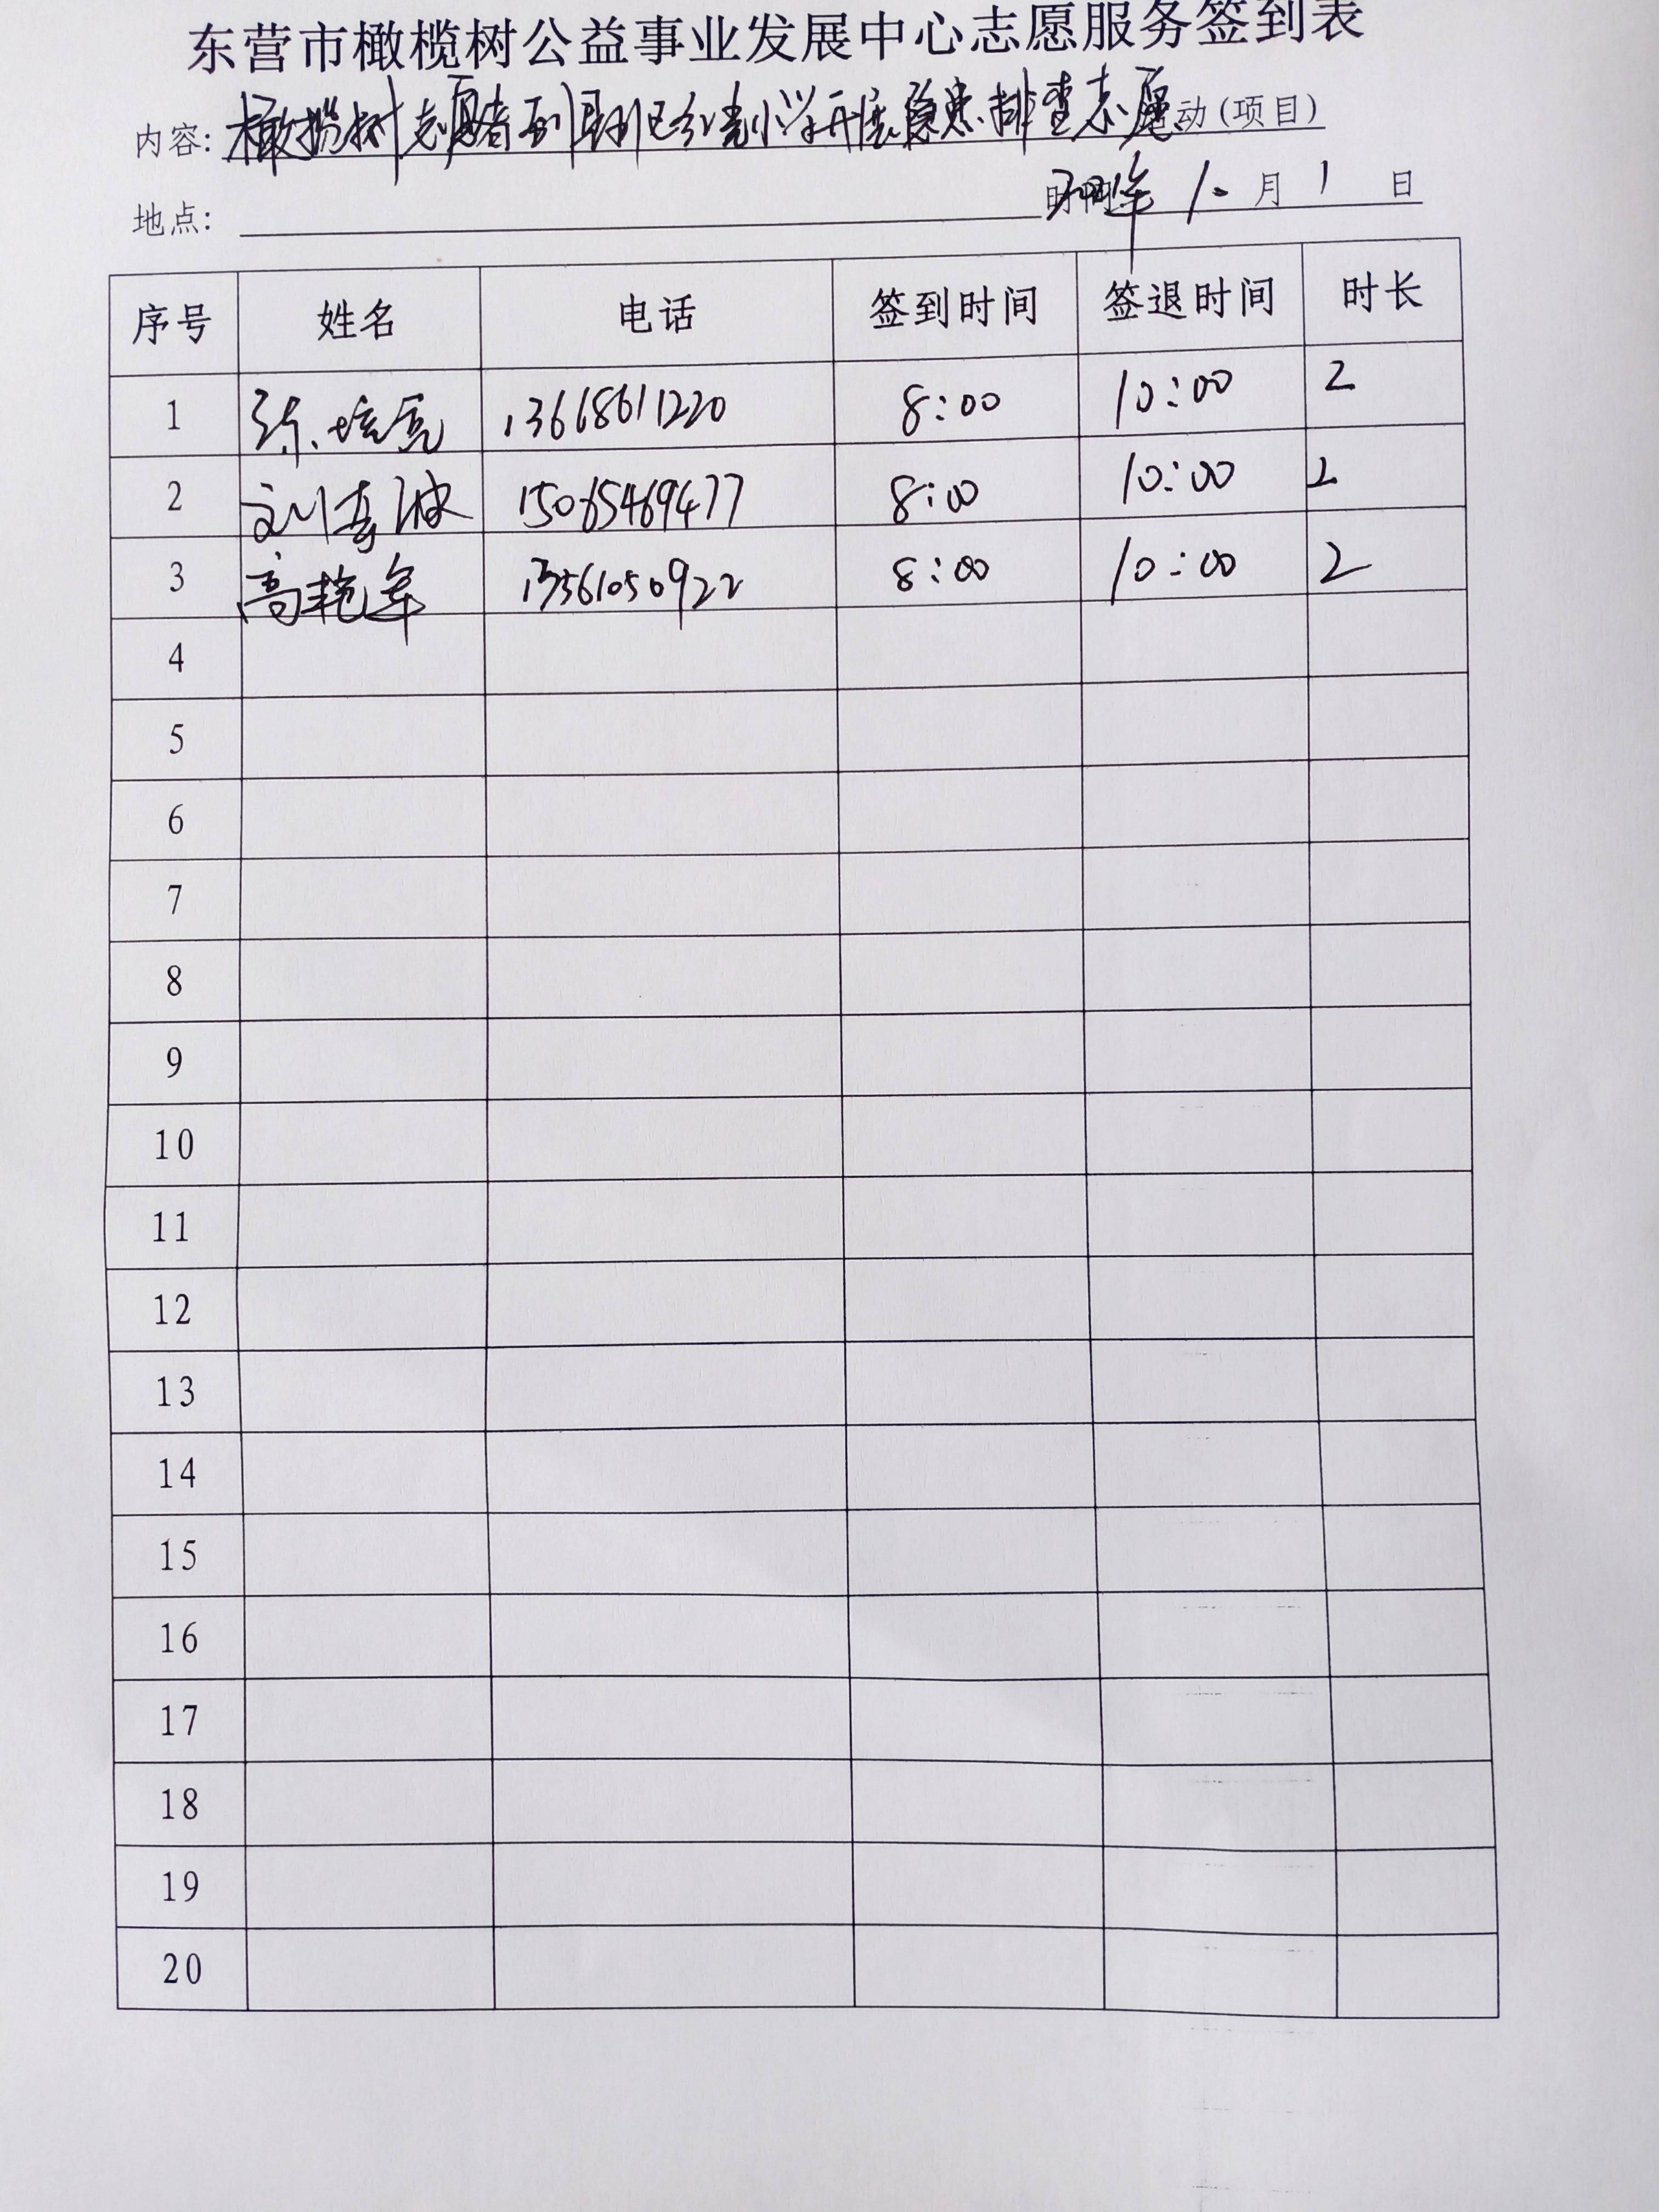 东营市橄榄树公益事业发展中心志愿服务签到表
内容: 橄榄树志愿者到 小学开展隐患排查志愿 动(项目)
地点: 年 10月 1 日
序号 姓名 电话 签到时间 签退时间 时长
1 13668611220 8:00 10:00 2
2 刘 波 15065469477 8:00 10:00 2
3 高艳军 13561050922 8:00 10:00 2
4
5
6
7
8
9
10
11
12
13
14
15
16
17
18
19
20